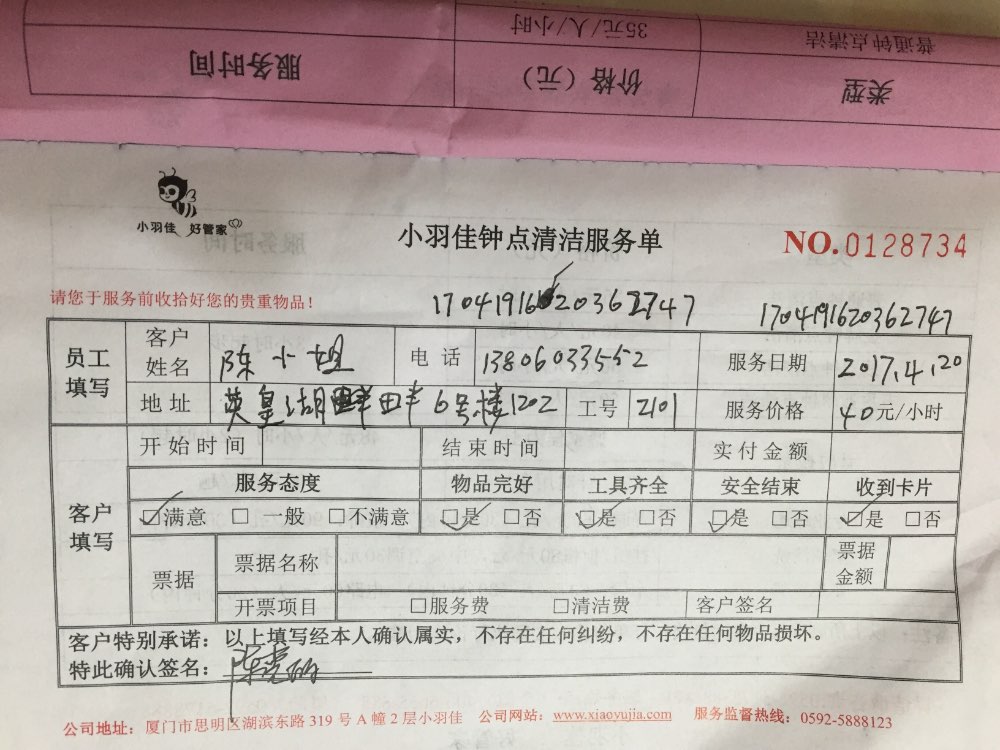 35元/人/小时
普通钟点清洁
服务时间
价格（元）
类型
小羽佳 好管家
小羽佳钟点清洁服务单
NO.0128734
请您于服务前收拾好您的贵重物品！
1704191620362747
1704191620362747
员工填写
客户姓名 陈小姐 电话 13806033552 服务日期 2017.4.20
地址 英皇湖畔 6号楼1202 工号 2101 服务价格 40元/小时
客户填写
开始时间 结束时间 实付金额
服务态度 物品完好 工具齐全 安全结束 收到卡片
☑满意 □一般 □不满意 ☑是 □否 ☑是 □否 ☑是 □否 ☑是 □否
票据 票据名称 票据金额
开票项目 □服务费 □清洁费 客户签名
客户特别承诺：以上填写经本人确认属实，不存在任何纠纷，不存在任何物品损坏。
特此确认签名：
公司地址：厦门市思明区湖滨东路 319 号 A 幢 2 层小羽佳 公司网站：www.xiaoyujia.com 服务监督热线：0592-5888123